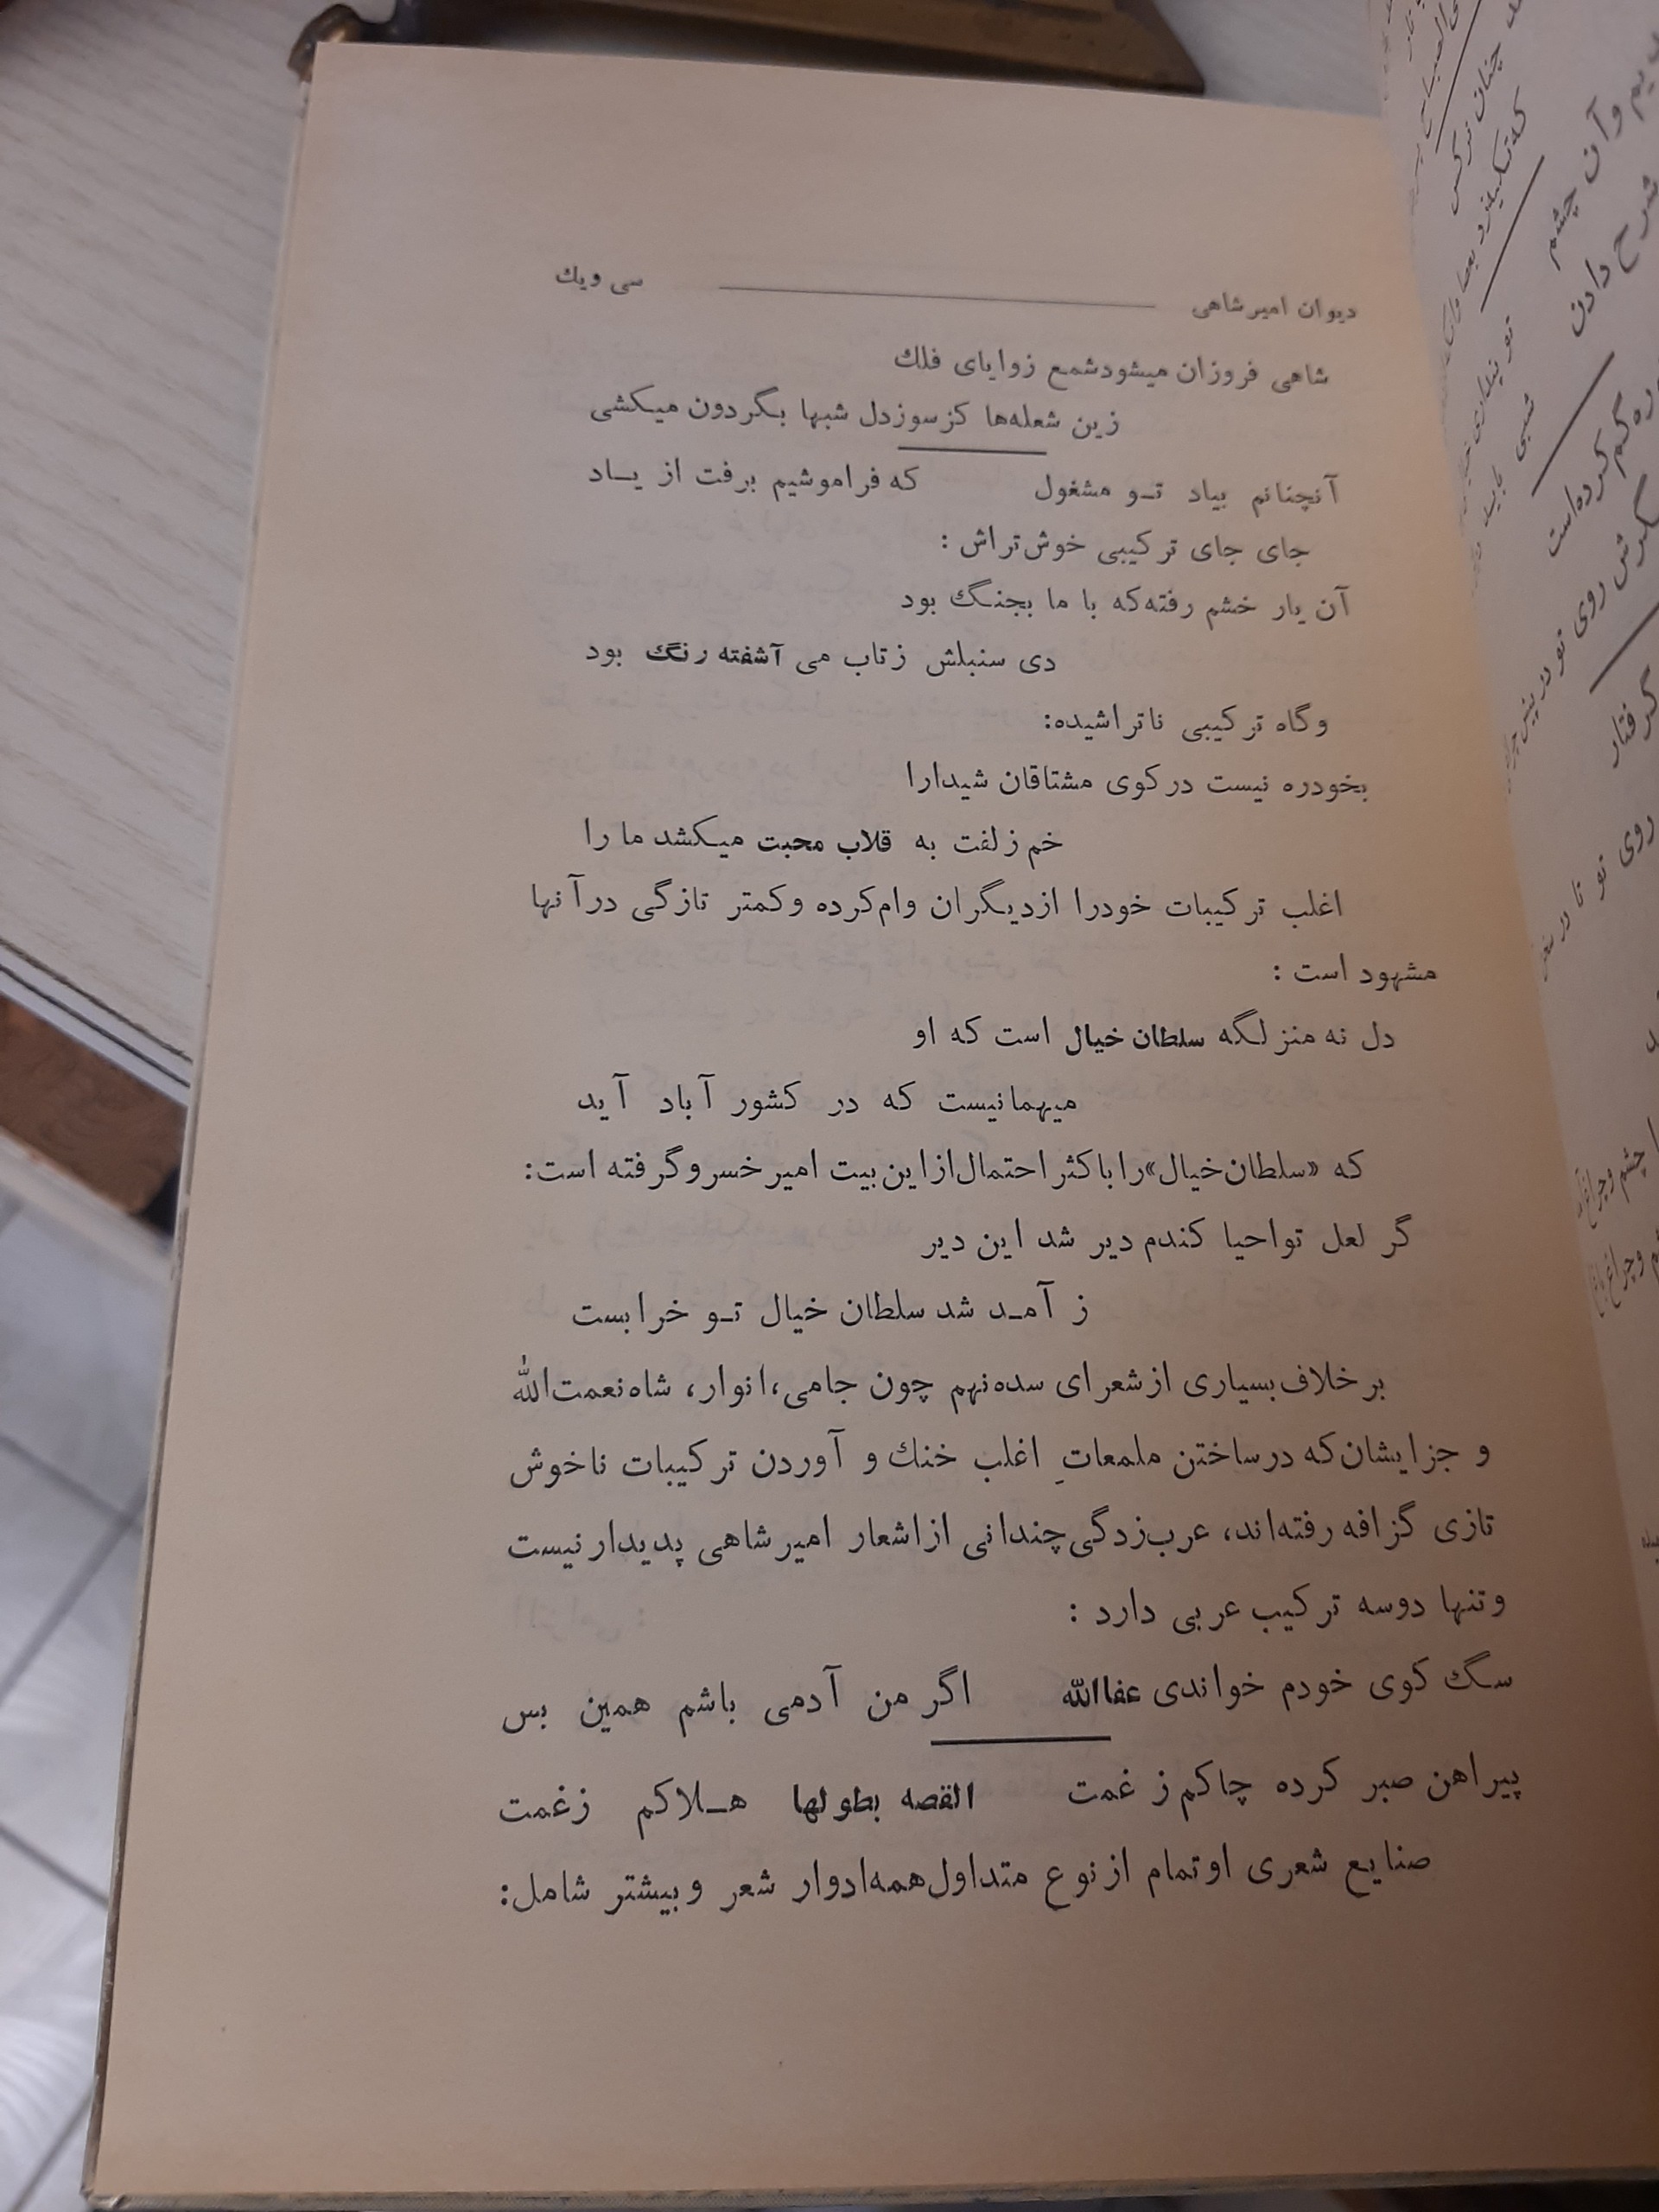 دیوان امیرشاهی سی و یك
شاهی فروزان میشودشمع زوایای فلك
زین شعله‌ها کزسوزدل شبها بگردون میکشی
آنچنانم بیاد تـو مشغول که فراموشیم برفت از یـاد
جای جای ترکیبی خوش‌تراش :
آن یار خشم رفته‌که با ما بجنگ بود
دی سنبلش زتاب می آشفته رنگ بود
وگاه ترکیبی ناتراشیده:
بخودره نیست درکوی مشتاقان شیدارا
خم زلفت به قلاب محبت میکشد ما را
اغلب ترکیبات خودرا ازدیگران وام‌کرده وکمتر تازگی درآنها
مشهود است :
دل نه منزلگه سلطان خیال است که او
میهمانیست که در کشور آباد آید
که «سلطان‌خیال»راباکثراحتمال‌ازاین‌بیت امیرخسروگرفته است:
گر لعل تواحیا کندم دیر شد این دیر
ز آمـد شد سلطان خیال تـو خرابست
برخلاف‌بسیاری ازشعرای سده‌نهم چون جامی،انوار، شاه‌نعمت‌الله
و جزایشان‌که درساختن ملمعاتِ اغلب خنك و آوردن ترکیبات ناخوش
تازی گزافه رفته‌اند، عرب‌زدگی‌چندانی ازاشعار امیرشاهی پدیدارنیست
وتنها دوسه ترکیب عربی دارد :
سگ کوی خودم خواندی عفاالله اگر من آدمی باشم همین بس
پیراهن صبر کرده چاکم ز غمت القصه بطولها هـلاکم زغمت
صنایع شعری اوتمام ازنوع متداول‌همه‌ادوار شعر وبیشتر شامل:
چنان نرگس
یم وآن چشم
شرح دادن
ره‌گم کرده‌است
گرفتار